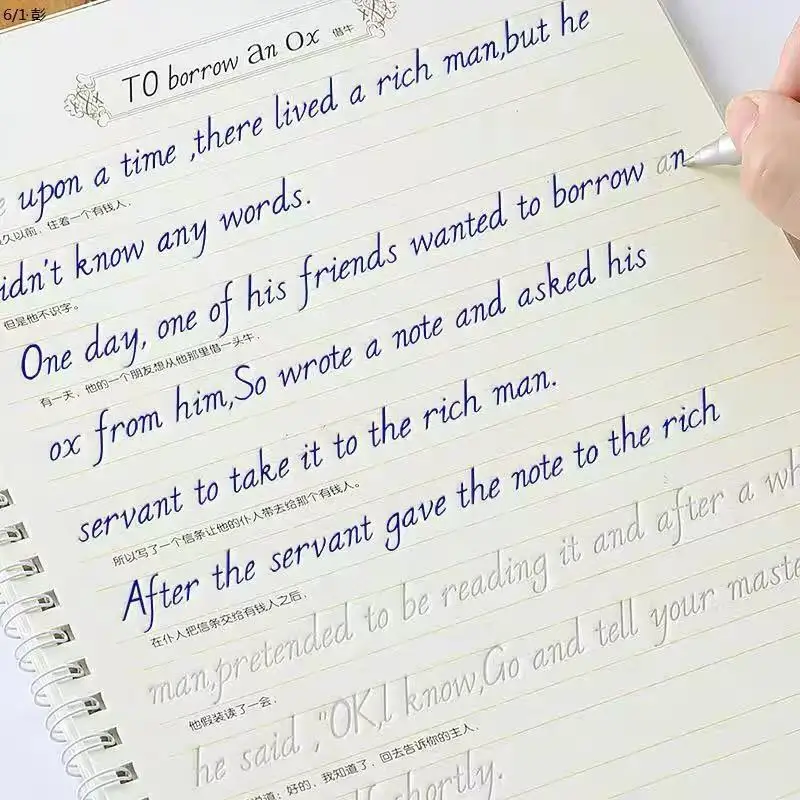 6/1·彭
TO borrow an Ox 借牛
upon a time ,there lived a rich man,but he
久以前，住着一个有钱人，
idn't know any words.
但是他不识字。
One day, one of his friends wanted to borrow an
有一天，他的一个朋友想从他那里借一头牛，
ox from him,So wrote a note and asked his
servant to take it to the rich man.
所以写了一个信条让他的仆人带去给那个有钱人。
After the servant gave the note to the rich
在仆人把信条交给有钱人之后，
man,pretended to be reading it and after a wh
他假装读了一会，
he said ,"OK,l know,Go and tell your maste
说道：好的，我知道了，回去告诉你的主人，
shortly.